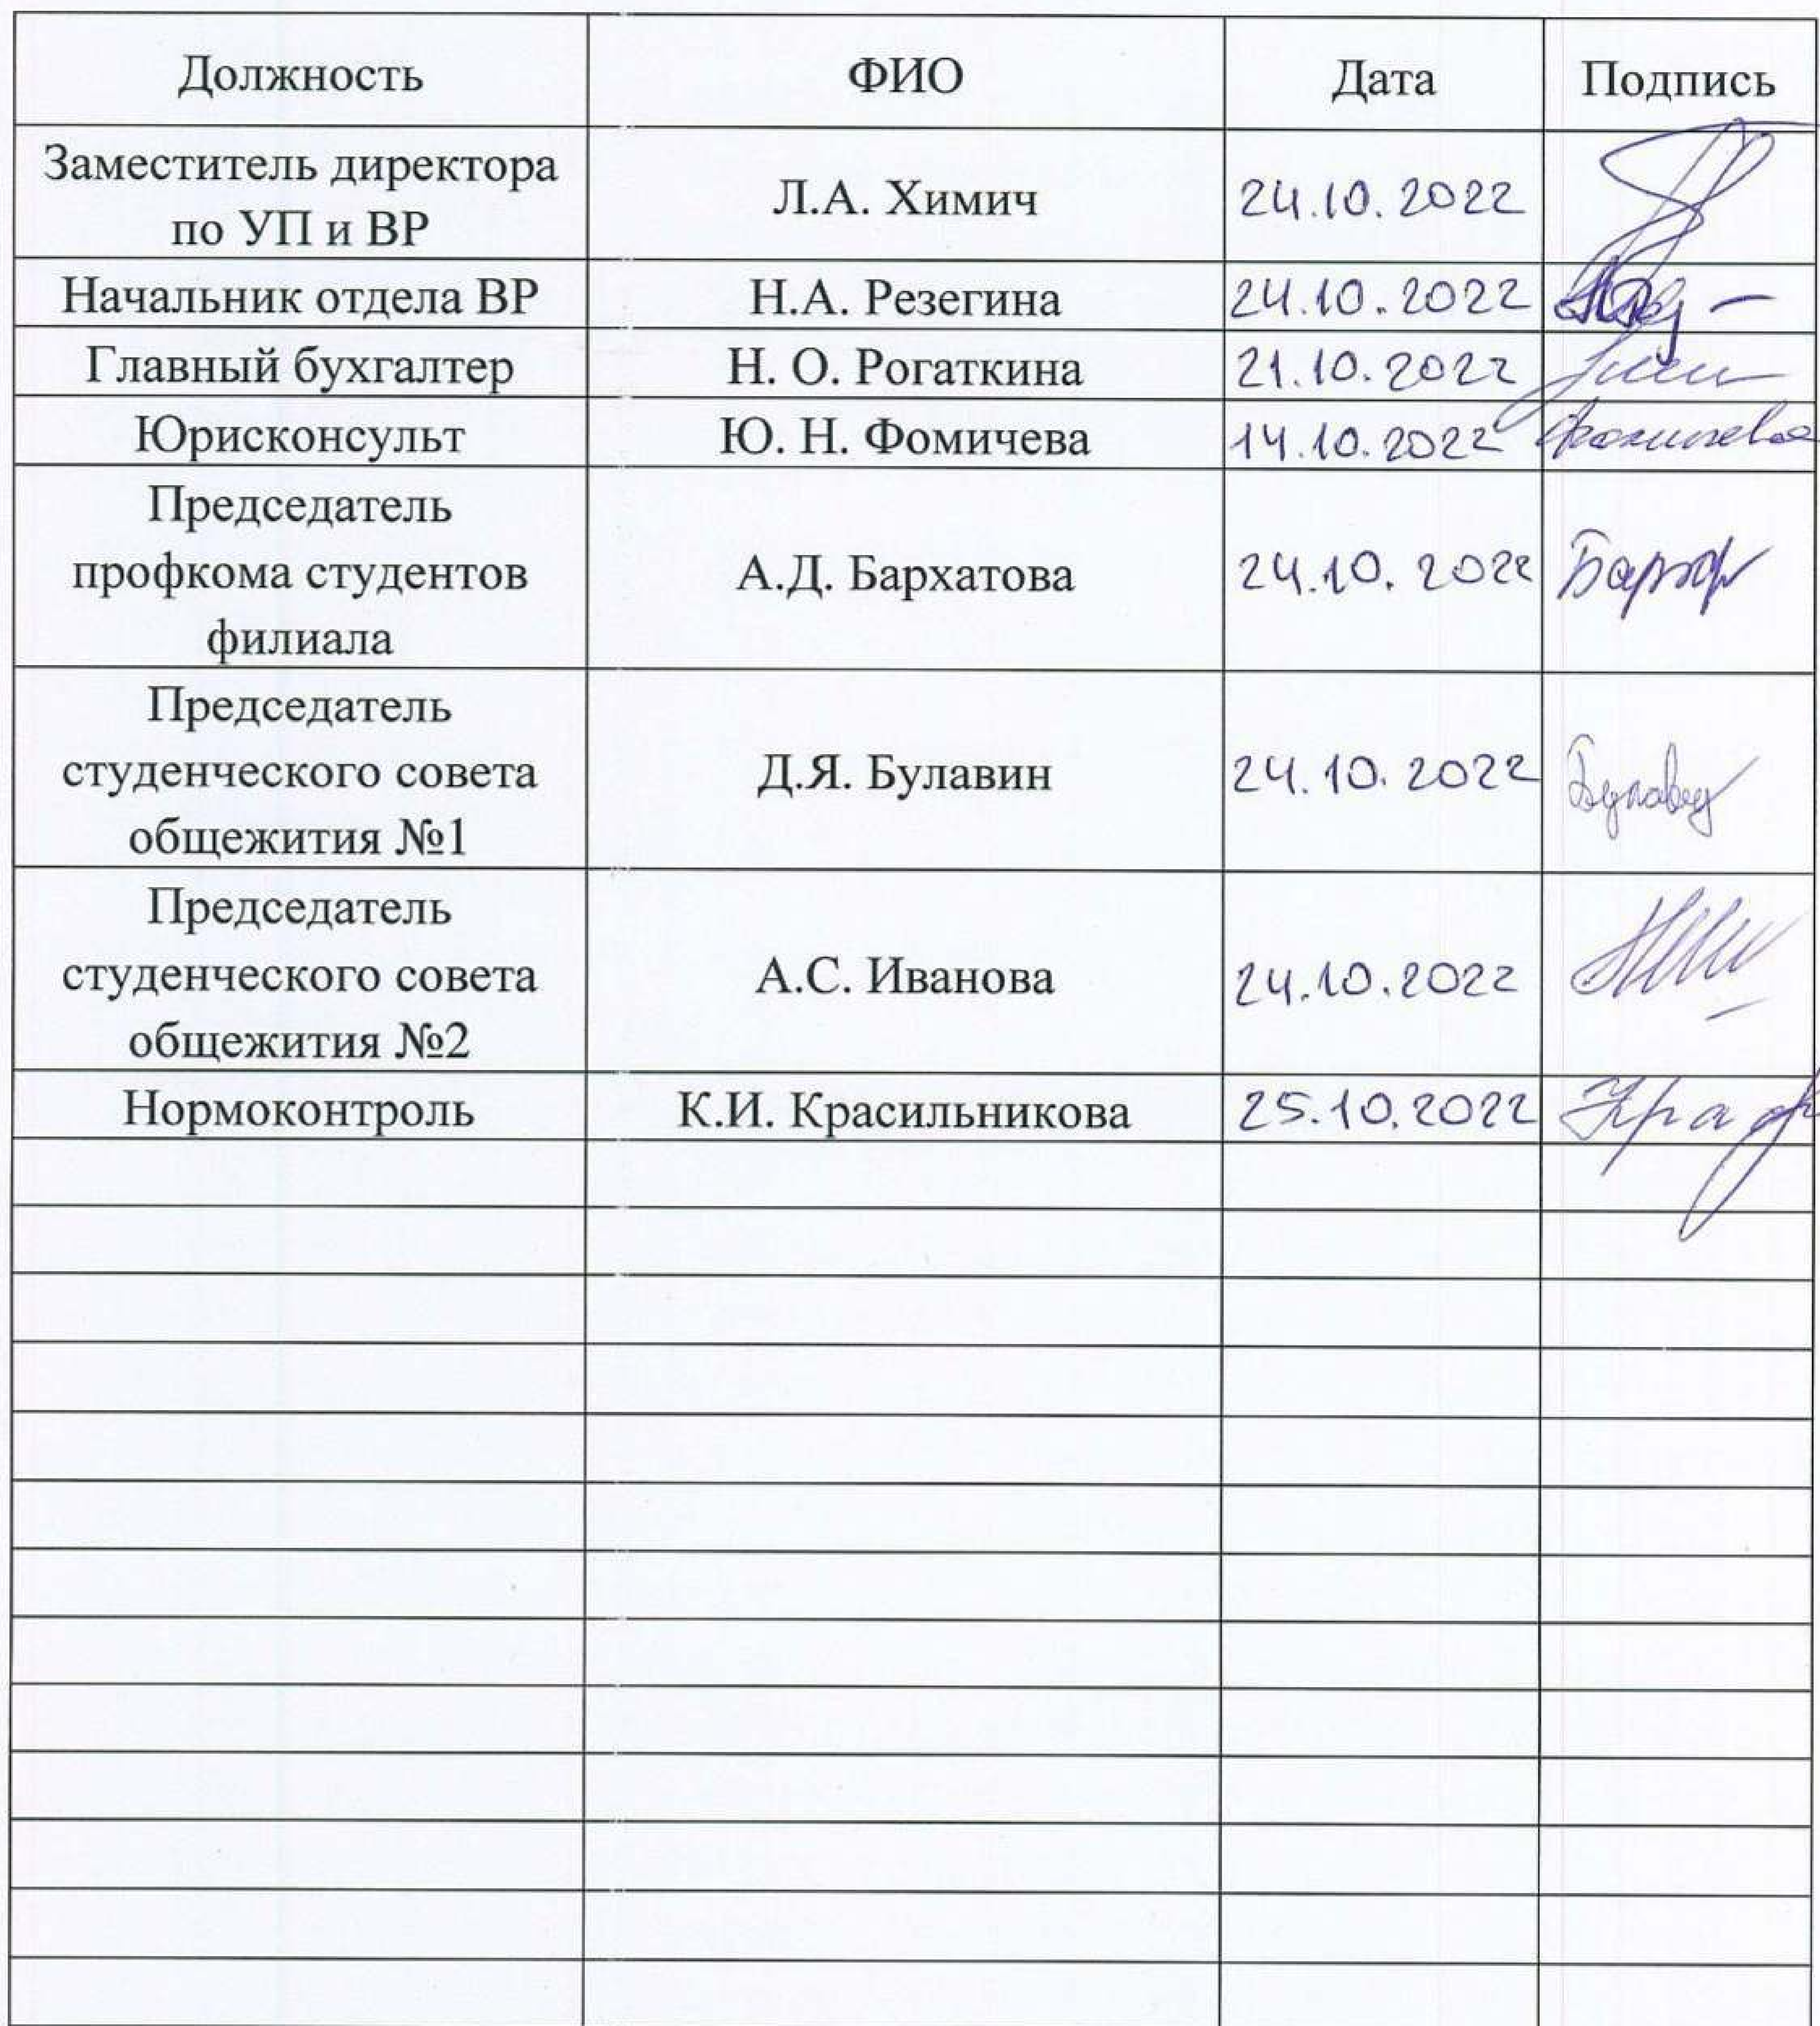 Должность ФИО Дата Подпись
Заместитель директора
по УП и ВР Л.А. Химич 24.10.2022
Начальник отдела ВР Н.А. Резегина 24.10.2022
Главный бухгалтер Н. О. Рогаткина 21.10.2022
Юрисконсульт Ю. Н. Фомичева 14.10.2022 Фомичева
Председатель
профкома студентов А.Д. Бархатова 24.10.2022
филиала
Председатель
студенческого совета Д.Я. Булавин 24.10.2022
общежития №1
Председатель
студенческого совета А.С. Иванова 24.10.2022
общежития №2
Нормоконтроль К.И. Красильникова 25.10.2022